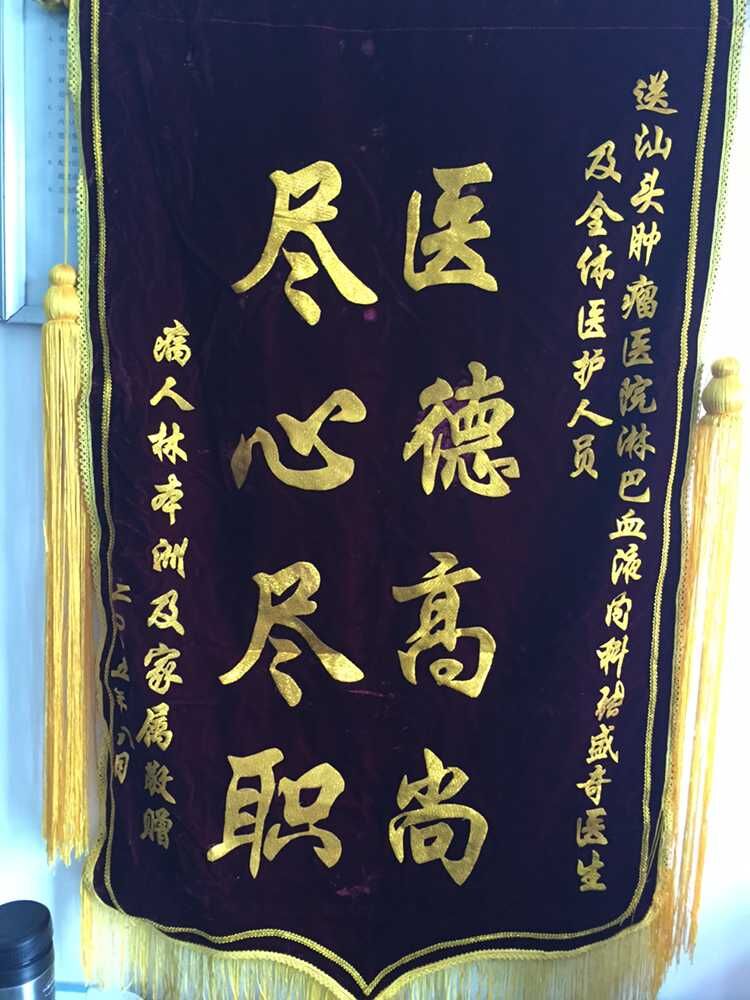 送汕头肿瘤医院淋巴血液内科张盛奇医生
及全体医护人员
医德高尚
尽心尽职
病人林本洲及家属敬赠
二〇一五年八月